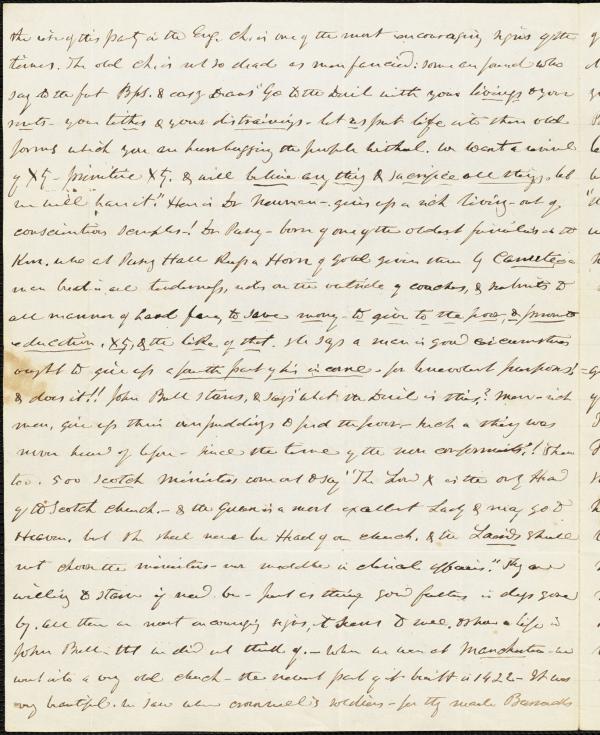 the rise of this party in the Eng. Ch. is one of the most encouraging signs of the
times. The old Ch. is not so dead as men fancied: some are found who
say to the fat Bps. & cozy Deans "Go to the Devil with your livings & your
rents - your tithes & your distrainings - let us put life into these old
forms which you are humbugging the people withal. We want a revival
of X^ty - primitive X^ty. & will believe anything & sacrifice all things, but
we will "have it." Here is Dr Newman - gives up a rich living - out of
conscientious scruples! Dr Pusey - born of one of the oldest families in the
Km. who at Pusey Hall keeps a Horn of Gold given them by Canute, a
man bred in all tenderness, rides on the outside of coaches, & submits to
all manner of hard fare, to save money - to give to the poor, & promote
education, X^ty, & the like of that. He says a man in good circumstances
ought to give up a fourth part of his income - for benevolent purposes!
& does it!! John Bull stares, & says "what the Devil is this,? men - rich
men, give up their puddings to feed the poor - such a thing was
never heard of before - since the time of the non conformists"! Then
too. 500 Scotch ministers come out & say "The Lord X is the only Head
of the Scotch church. - & the Queen is a most excellent Lady & may go to
Heaven, but she shall never be Head of our church, & the Lairds shall
not choose the ministers - nor meddle in clerical affairs." They are
willing to starve if need be - just as their good fathers in days gone
by. All these are most encouraging signs, it seems to me. & show a life in
John Bull that we did not think of. - When we were at Manchester - we
went into a very old church - the newest part of it built in 1422 - It was
very beautiful. We saw where Cromwell's soldiers - for they made Barracks